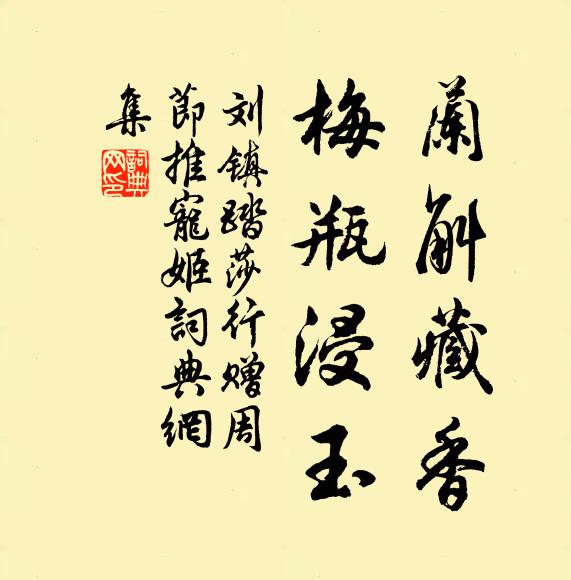 蘭斛藏香
梅瓶浸玉
刘镇踏莎行赠周
節推寵姬詞典網
集
詞典
网印